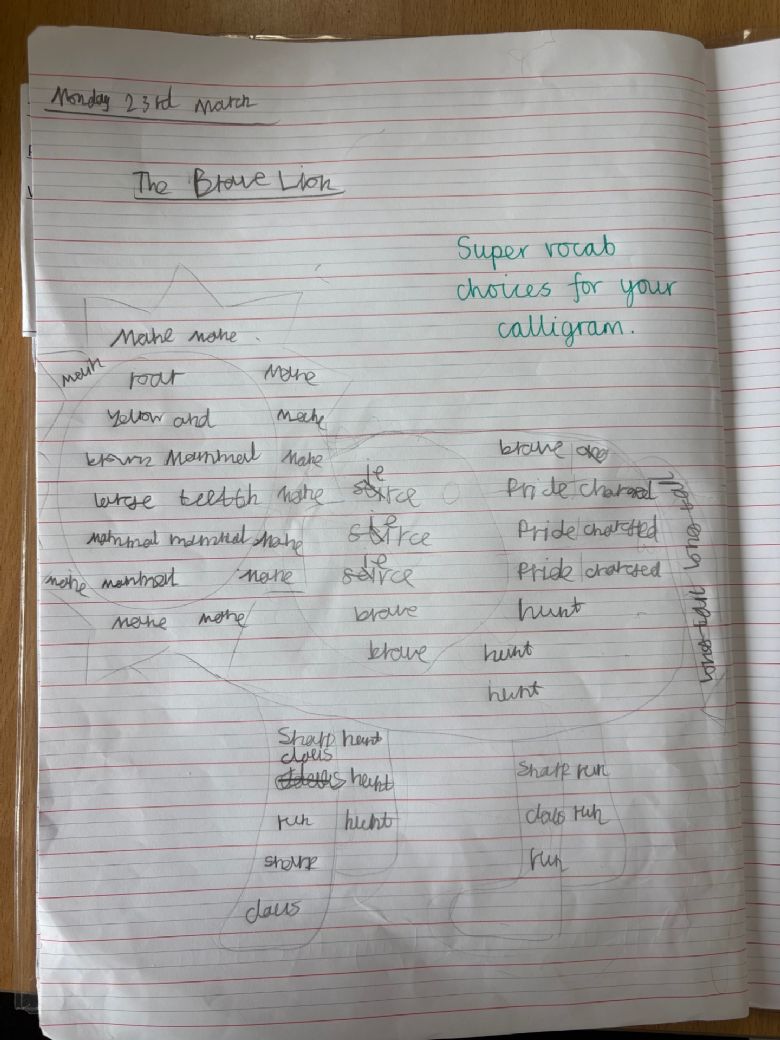 Monday 23rd March
The Brave Lion
Super vocab
choices for your
calligram.
Mane mane
mane roar mane
yellow and mane
brown Mammal mane brave one
large teetth mane feirce Pride charged
mammal mammal mane feirce Pride charged
mane mammal mane feirce Pride charged
mane mane brave hunt
brave hunt
hunt
long tail long tail
Sharp hunt
claws
hunt sharp run
run hunt claws run
sharp run
claws